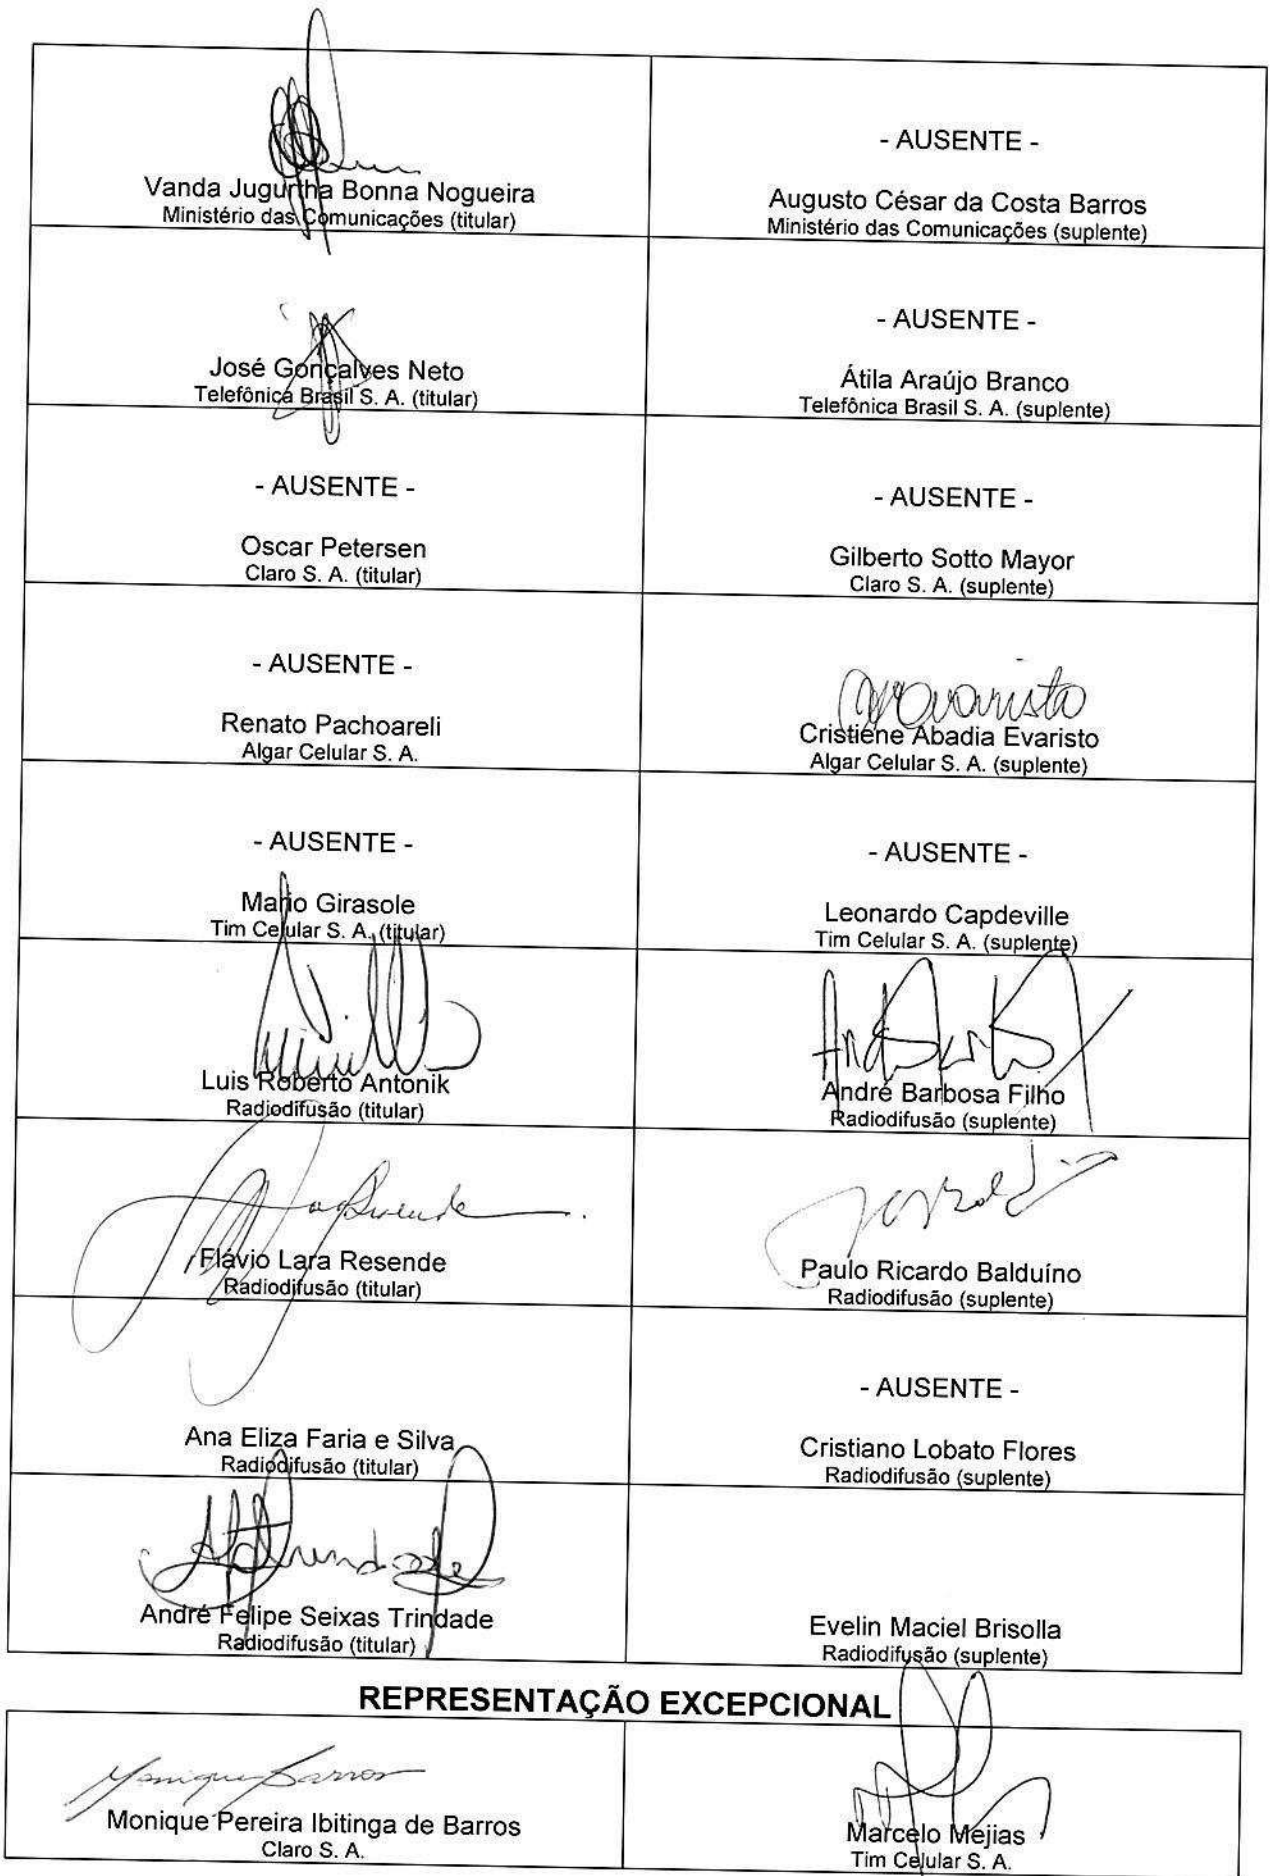 Vanda Jugurtha Bonna Nogueira
Ministério das Comunicações (titular)
- AUSENTE -
Augusto César da Costa Barros
Ministério das Comunicações (suplente)
José Gonçalves Neto
Telefônica Brasil S. A. (titular)
- AUSENTE -
Átila Araújo Branco
Telefônica Brasil S. A. (suplente)
- AUSENTE -
Oscar Petersen
Claro S. A. (titular)
- AUSENTE -
Gilberto Sotto Mayor
Claro S. A. (suplente)
- AUSENTE -
Renato Pachoareli
Algar Celular S. A.
Cristiene Abadia Evaristo
Algar Celular S. A. (suplente)
- AUSENTE -
Mario Girasole
Tim Celular S. A. (titular)
- AUSENTE -
Leonardo Capdeville
Tim Celular S. A. (suplente)
Luis Roberto Antonik
Radiodifusão (titular)
André Barbosa Filho
Radiodifusão (suplente)
Flávio Lara Resende
Radiodifusão (titular)
Paulo Ricardo Balduíno
Radiodifusão (suplente)
Ana Eliza Faria e Silva
Radiodifusão (titular)
- AUSENTE -
Cristiano Lobato Flores
Radiodifusão (suplente)
André Felipe Seixas Trindade
Radiodifusão (titular)
Evelin Maciel Brisolla
Radiodifusão (suplente)
REPRESENTAÇÃO EXCEPCIONAL
Monique Barros
Monique Pereira Ibitinga de Barros
Claro S. A.
Marcelo Mejias
Tim Celular S. A.